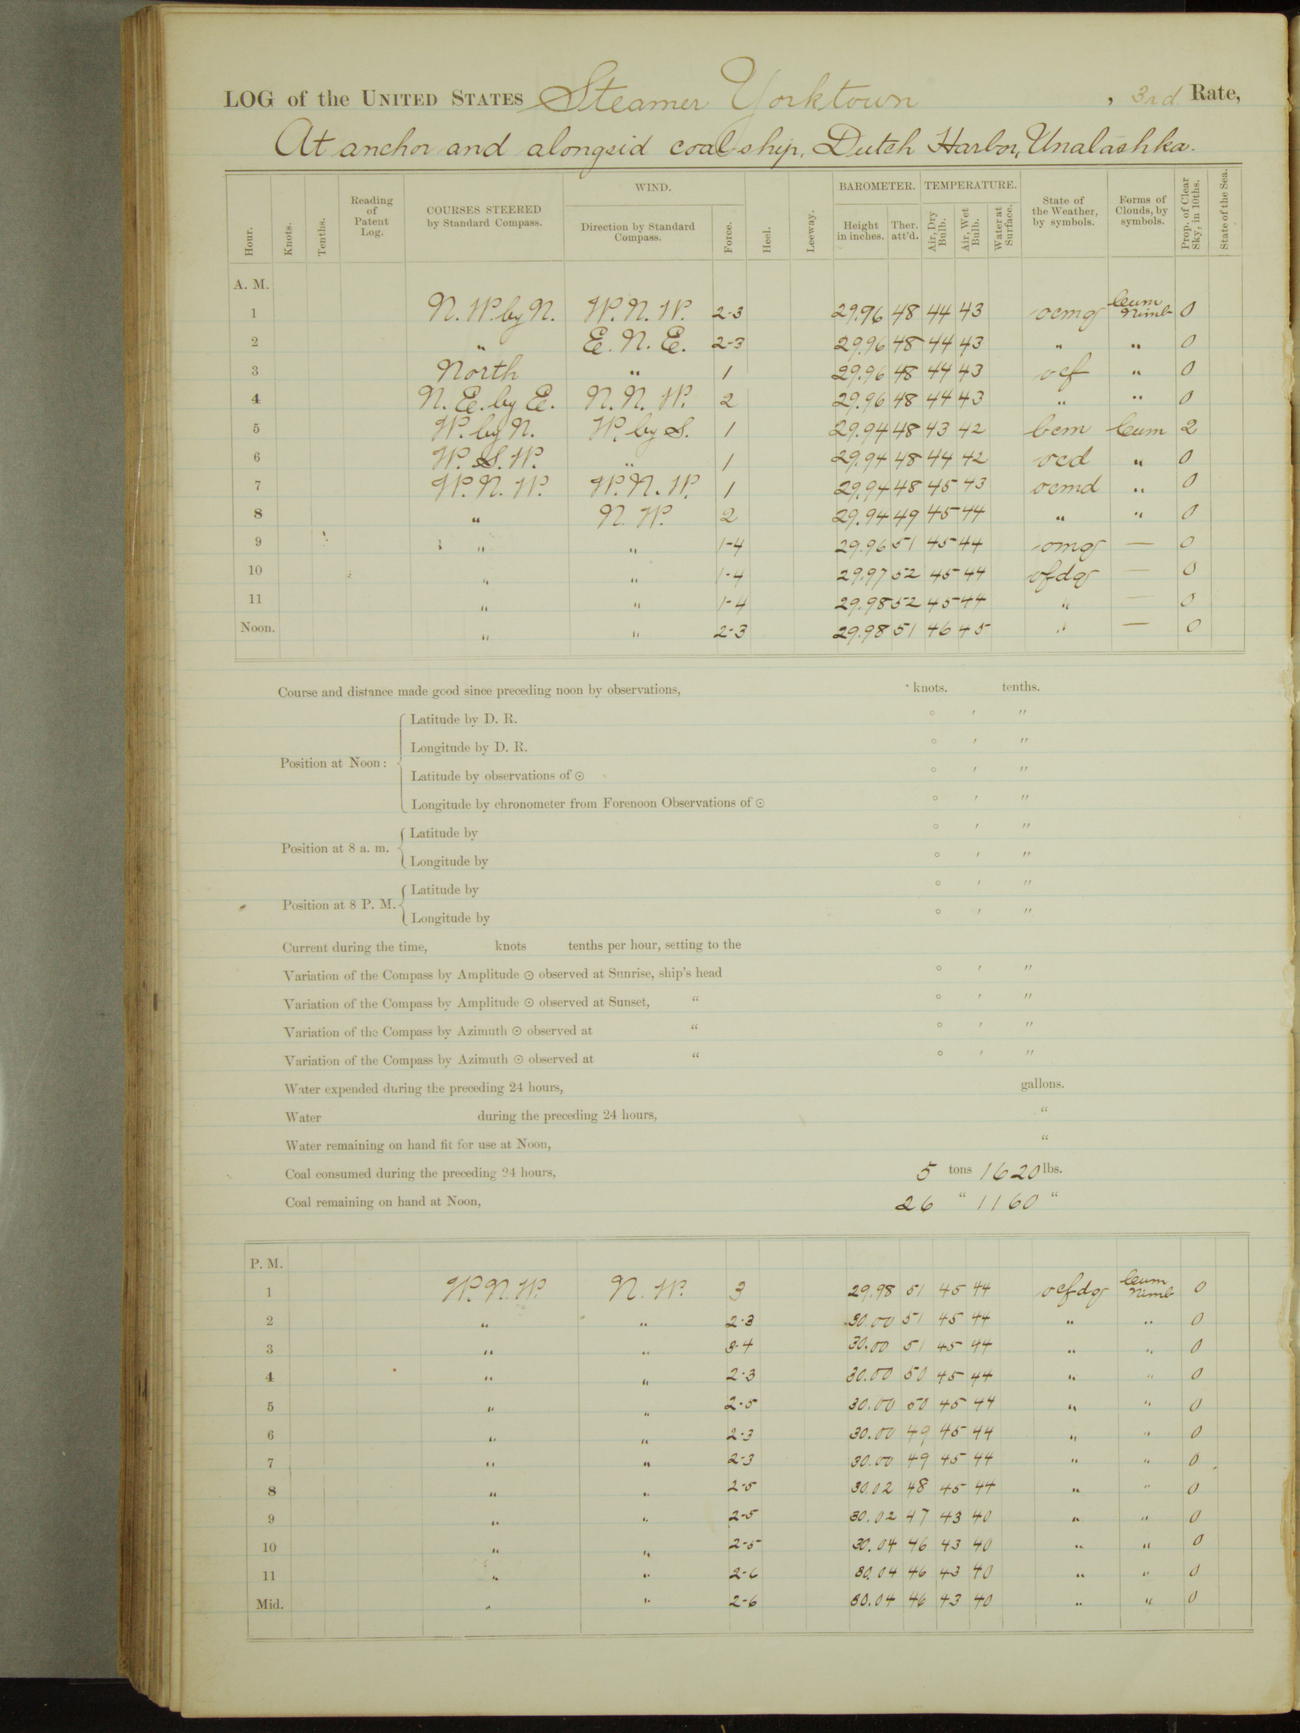 LOG of the UNITED STATES Steamer Yorktown, 3rd Rate,
At anchor and alongsid coal ship, Dutch Harbor, Unalashka.
Hour. Knots. Tenths. Reading of Patent Log. COURSES STEERED by Standard Compass. WIND. Direction by Standard Compass. Force. Heel. Leeway. BAROMETER. Height in inches. Ther. att'd. TEMPERATURE. Air, Dry Bulb. Air, Wet Bulb. Water at Surface. State of the Weather, by symbols. Forms of Clouds, by symbols. Prop. of Clear Sky, in 10ths. State of the Sea.
A. M.
1 N. W. by N. W. N. W. 2-3 29.96 48 44 43 ocmg Cum Nimb 0
2 " E. N. E. 2-3 29.96 48 44 43 " " 0
3 North " 1 29.96 48 44 43 ocf " 0
4 N. E. by E. N. N. W. 2 29.96 48 44 43 " " 0
5 W. by N. W. by S. 1 29.94 48 43 42 bcm Cum 2
6 W. S. W. " 1 29.94 48 44 42 ocd " 0
7 W. N. W. W. N. W. 1 29.94 48 45 43 ocmd " 0
8 " N. W. 2 29.94 49 45 44 " " 0
9 " " 1-4 29.96 51 45 44 omg — 0
10 " " 1-4 29.97 52 45 44 ofdg — 0
11 " " 1-4 29.98 52 45 44 " — 0
Noon. " " 2-3 29.98 51 46 45 " — 0
Course and distance made good since preceding noon by observations, knots. tenths.
Position at Noon:
Latitude by D. R. ° ' "
Longitude by D. R. ° ' "
Latitude by observations of ☉ ° ' "
Longitude by chronometer from Forenoon Observations of ☉ ° ' "
Position at 8 a. m.
Latitude by ° ' "
Longitude by ° ' "
Position at 8 P. M.
Latitude by ° ' "
Longitude by ° ' "
Current during the time, knots tenths per hour, setting to the
Variation of the Compass by Amplitude ☉ observed at Sunrise, ship's head ° ' "
Variation of the Compass by Amplitude ☉ observed at Sunset, " ° ' "
Variation of the Compass by Azimuth ☉ observed at " ° ' "
Variation of the Compass by Azimuth ☉ observed at " ° ' "
Water expended during the preceding 24 hours, gallons.
Water during the preceding 24 hours, "
Water remaining on hand fit for use at Noon, "
Coal consumed during the preceding 24 hours, 5 tons 1620 lbs.
Coal remaining on hand at Noon, 26 " 1160 "
P. M.
1 W. N. W. N. W. 3 29.98 51 45 44 ocfdg Cum Nimb 0
2 " " 2-3 30.00 51 45 44 " " 0
3 " " 3-4 30.00 51 45 44 " " 0
4 " " 2-3 30.00 50 45 44 " " 0
5 " " 2-5 30.00 50 45 44 " " 0
6 " " 2-3 30.00 49 45 44 " " 0
7 " " 2-3 30.00 49 45 44 " " 0
8 " " 2-5 30.02 48 45 44 " " 0
9 " " 2-5 30.02 47 43 40 " " 0
10 " " 2-5 30.04 46 43 40 " " 0
11 " " 2-6 30.04 46 43 40 " " 0
Mid. " " 2-6 30.04 46 43 40 " " 0